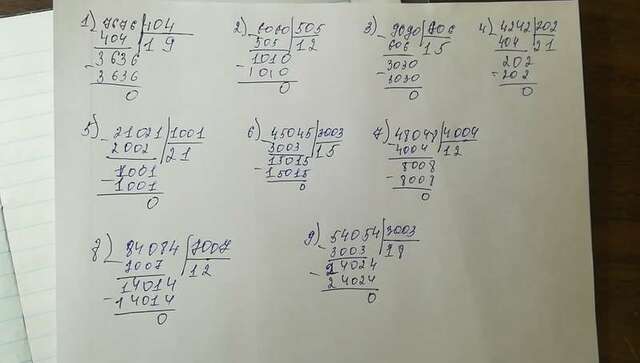 1) 7676 404
404 19
- 3636
3636
0
2) - 6060 505
505 12
- 1010
1010
0
3) - 9090 606
606 15
- 3030
3030
0
4) - 4242 202
404 21
- 202
202
0
5) - 21021 1001
2002 21
- 1001
1001
0
6) - 45045 3003
3003 15
- 15015
15015
0
7) - 48048 4004
4004 12
- 8008
8008
0
8) - 84084 7007
7007 12
- 14014
14014
0
9) - 54054 3003
3003 18
- 24024
24024
0